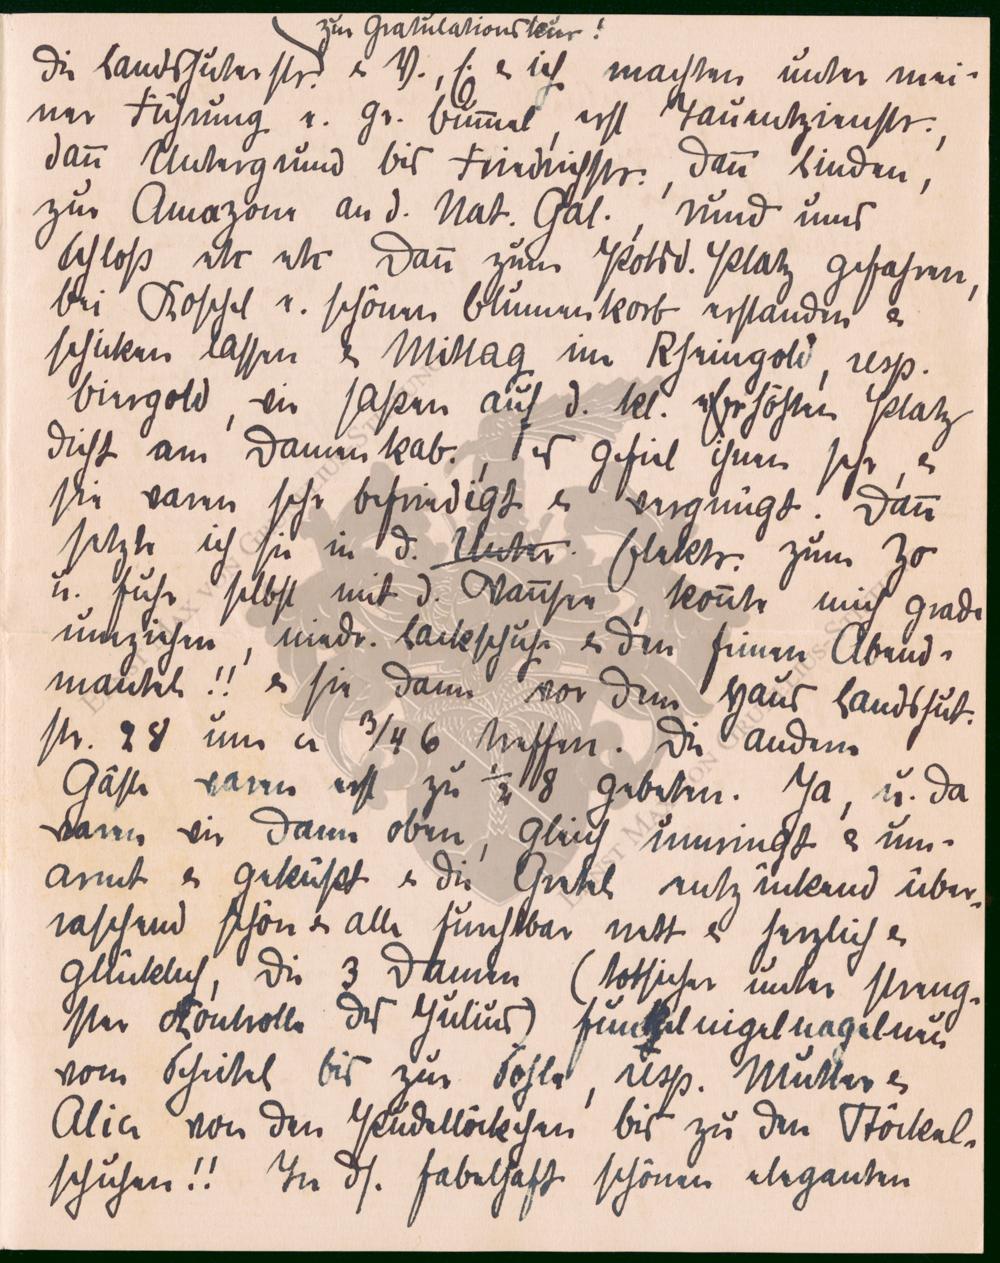 zur Gratulationskur!
die Landshuterstr. & V., E. & ich machten unter mei-
ner Führung e. gr. Bum̄el, erst Tauentzienstr.,
dan̄ Untergrund bis Friedrichstr., dan̄ Linden,
zur Amazone an d. Nat. Gal., rund ums
Schloß etc etc Dan̄ zum Potsd. Platz gefahren,
bei Koschel e. schönen Blumenkorb erstanden &
schicken lassen & Mittag im Rheingold, resp.
Biergold, wir saßen auf d. kl. erhöhten Platz
dicht am Damenkab., es gefiel ihnen sehr, &
sie waren sehr befriedigt & vergnügt. Dan̄
setzte ich sie in d. Unter. Elektr. zum Zo
u. fuhr selbst mit d. Wan̄see, kon̄te mich grade
umziehen, niedr. Lackschuhe & den feinen Abend-
mantel!! & sie dann vor dem Haus Landshut.
str. 28 um ca 3/4 6 treffen. Die andern
Gäste waren erst zu 1/2 8 gebeten. Ja, u. da
waren wir dann oben, gleich umringt & um-
armt & geküßt & die Gretel entzückend über-
raschend schön & alle furchtbar nett & herzlich &
glücklich, die 3 Damen (totsicher unter streng-
ster Kontrolle des Julius) funkelnigelnagelneu
vom Scheitel bis zur Sohle, resp. Mutter &
Alice von den Pudellöckchen bis zu den Stöckel-
schuhen!! In ds. fabelhaft schönen eleganten